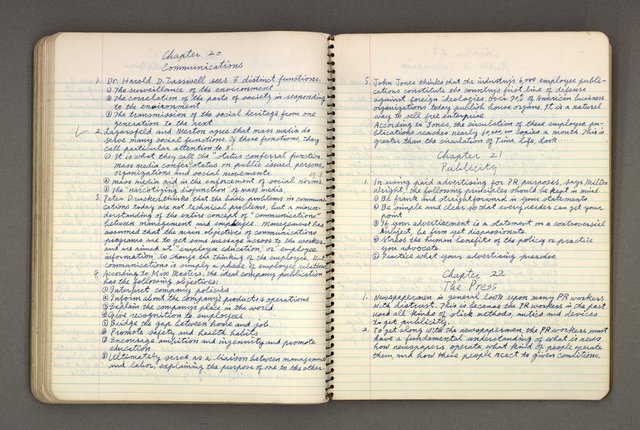 Chapter 20
Communications
1. Dr. Harold D. Lasswell sees 3 distinct functions.
① The surveillance of the environment
② The correlation of the parts of society in responding
to the environment
③ The transmission of the social heritage from one
generation to the next
2. Lazarsfeld and Merton agree that mass media do
serve many social functions. Of these functions, they
call particular attention to 3:
① It is what they call the "status conferral" function,
mass media confer status on public issues, persons,
organizations and social movements.
② mass media aid in the enforcement of social norms.
③ The "narcotizing disfunction" of mass media
3. Peter Drucker thinks that the basic problems in commun-
ications today are not technical problems, but a misun-
derstanding of the entire concept of "communications"
between management and employee. Management has
assumed that the main objectives of communications
programs are to get some message across to the worker,
and are aimed at "employee education" or "employee
information", to change the thinking of the employee. But
communications is simply a phase of employee relations
4. According to Miss Masters, the ideal company publication
has the following objectives:
① Interpret company policies
② Inform about the company's products & operations
③ Explain the company's place in the world
④ Give recognition to employees
⑤ Bridge the gap between home and job.
⑥ Promote safety and health habits
⑦ Encourage ambition and ingenuity and promote
education
⑧ Ultimately serve as a liaison between management
and labor, explaining the purpose of one to the other.
5. John Jones thinks that the industry's 6,000 employee publi-
cations constitute the country's first line of defense
against foreign ideologies. Over 70% of American business
organizations today publish house organs. It is a natural
way to sell free enterprise
According to Jones, the circulation of these employee pu-
blications reaches nearly copies a month. This is
greater than the circulation of Time, Life, Look
Chapter 21
Publicity
In using paid advertising for PR purposes, says Milton
Wright, the following principles should be kept in mind.
① Be frank and straightforward in your statements
② Be simple and clear so that every reader can get your
point
③ If your advertisement is a statement on a controversial
subject, be firm yet dispassionate.
④ Stress the human benefits of the policy or practice
you advocate
⑤ Practice what your advertising preaches.
Chapter 22
The Press
1. Newspapermen in general look upon many PR workers
with distrust. This is because the PR workers in the past
used all kinds of slick methods, antics and devices
to get publicity.
2. To get along with the newspapermen, the PR workers must
have a fundamental understanding of what is news
how newspapers operate, what kind of people operate
them and how these people react to given conditions.